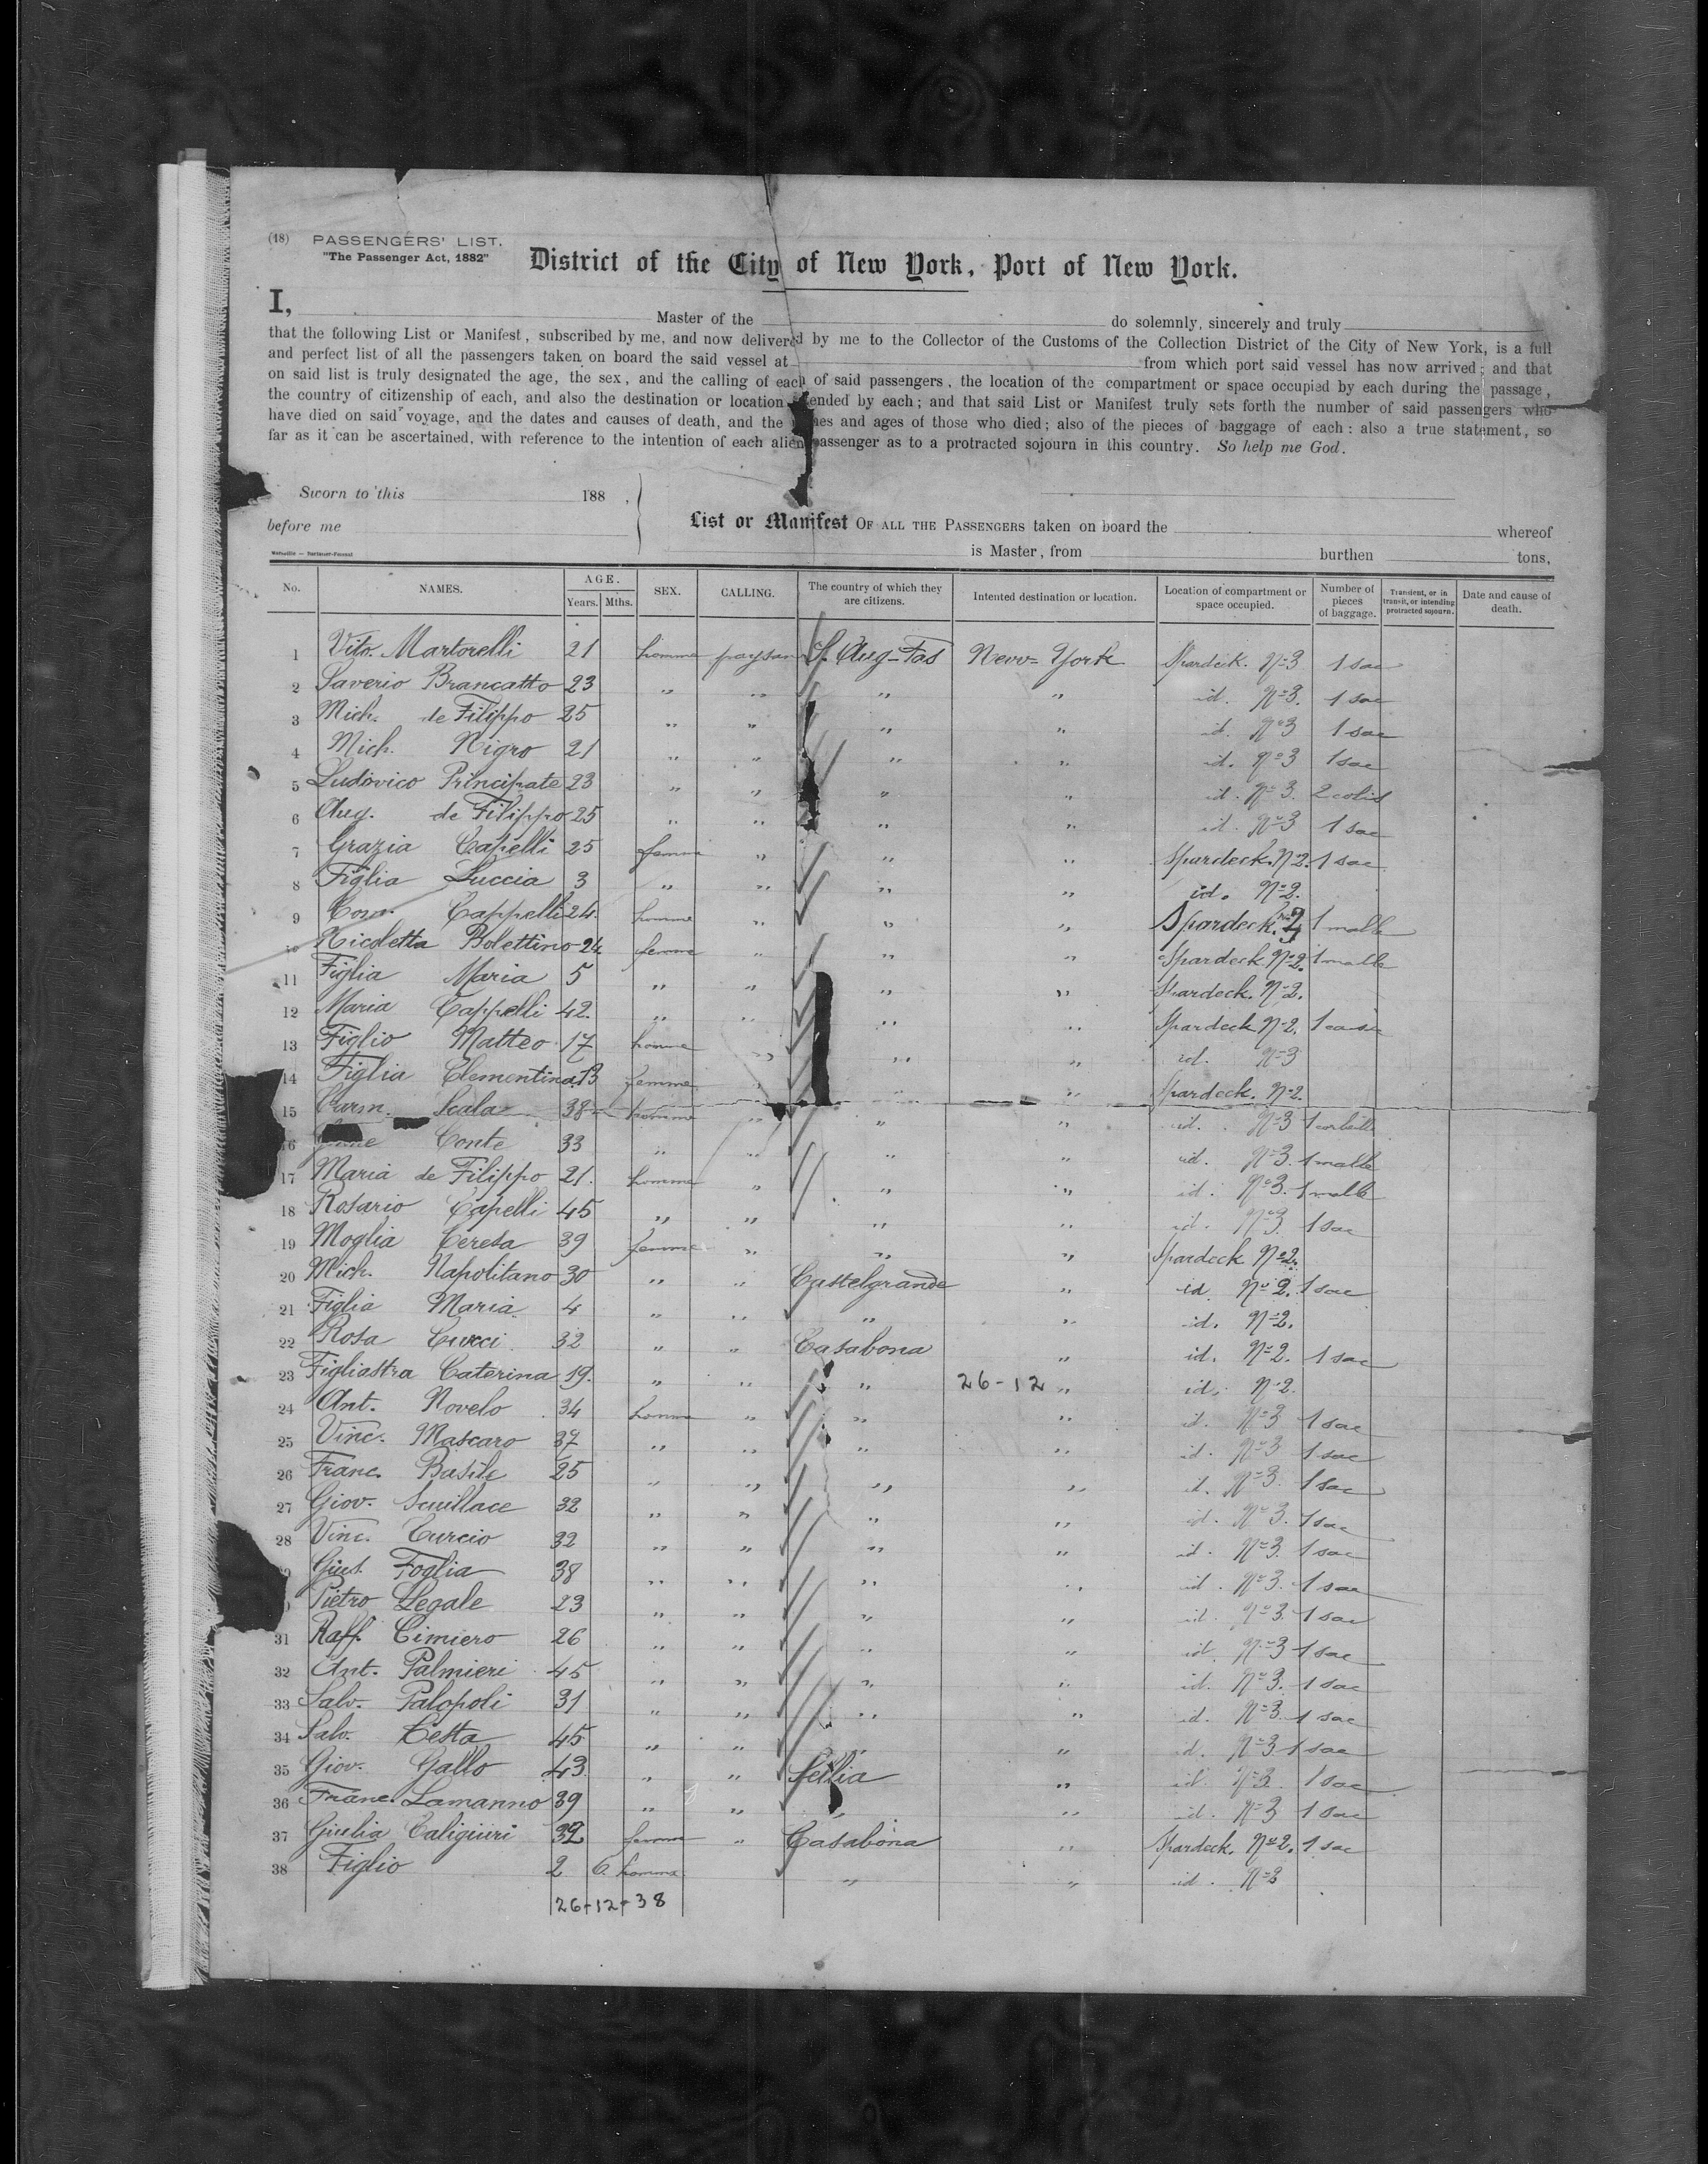 (18) PASSENGERS' LIST.
"The Passenger Act, 1882"
District of the City of New York, Port of New York.
I, Master of the do solemnly, sincerely and truly
that the following List or Manifest, subscribed by me, and now delivered by me to the Collector of the Customs of the Collection District of the City of New York, is a full
and perfect list of all the passengers taken on board the said vessel at from which port said vessel has now arrived; and that
on said list is truly designated the age, the sex, and the calling of each of said passengers, the location of the compartment or space occupied by each during the passage,
the country of citizenship of each, and also the destination or location intended by each; and that said List or Manifest truly sets forth the number of said passengers who
have died on said voyage, and the dates and causes of death, and the names and ages of those who died; also of the pieces of baggage of each: also a true statement, so
far as it can be ascertained, with reference to the intention of each alien passenger as to a protracted sojourn in this country. So help me God.
Sworn to this 188 ,
before me
List or Manifest OF ALL THE PASSENGERS taken on board the whereof
is Master, from burthen tons,
No. NAMES. AGE. Years. Mths. SEX. CALLING. The country of which they are citizens. Intented destination or location. Location of compartment or space occupied. Number of pieces of baggage. Transient, or in transit, or intending protracted sojourn. Date and cause of death.
1 Vito Martorelli 21 homme paysan S. Aug-Fas New-York Spardeck. No3 1 sac
2 Saverio Brancatto 23 " " " " id. No3. 1 sac
3 Mich. de Filippo 25 " " " " id. No3 1 sac
4 Mich. Nigro 21 " " " " id. No3 1 sac
5 Ludovico Principate 23 " " " " id. No3. 2 colis
6 Aug. de Filippo 25 " " " " id. No3 1 sac
7 Grazia Capelli 25 femme " " " Spardeck. No2. 1 sac
8 Figlia Luccia 3 " " " " id. No2.
9 Cappelli 24 homme " " " Spardeck. 1 malle
10 Nicoletta Bolettino 24 femme " " " Spardeck. No2. 1 malle
11 Figlia Maria 5 " " " " Spardeck. No2.
12 Maria Cappelli 42. " " " " Spardeck No2. 1 caisse
13 Figlio Matteo 17 homme " " " id. No3
14 Figlia Clementina 13 femme " " Spardeck. No2.
15 Carm. Scala 38 homme " " " id. No3 1 corbeille
16 Conte 33 " " " " id. No3. 1 malle
17 Maria de Filippo 21. homme " " " id. No3. 1 malle
18 Rosario Capelli 45 " " " " id. No3 1 sac
19 Moglia Teresa 39 femme " " " Spardeck No2.
20 Mich. Napolitano 30 " " Castelgrande " id. No2. 1 sac
21 Figlia Maria 4 " " " " id. No2.
22 Rosa Cucci 32 " " Casabona " id. No2. 1 sac
23 Figliastra Caterina 19. " " " 26-12 " id. No2.
24 Ant. Novelo 34 homme " " " id. No3 1 sac
25 Vinc. Mascaro 37 " " " " id. No3 1 sac
26 Franc. Basile 25 " " " " id. No3. 1 sac
27 Giov. Scuillace 32 " " " " id. No3. 1 sac
28 Vinc. Curcio 32 " " " " id. No3. 1 sac
Gius. Foglia 38 " " " " id. No3. 1 sac
Pietro Legale 23 " " " " id. No3. 1 sac
31 Raff. Cimiero 26 " " " " id. No3 1 sac
32 Ant. Palmieri 45 " " " " id. No3. 1 sac
33 Salv. Palopoli 31 " " " " id. No3 1 sac
34 Salv. Testa 45 " " " id. No3 1 sac
35 Giov. Gallo 43 " " " id. No3. 1 sac
36 Franc. Lamanno 39 " " " " id. No3 1 sac
37 Giulia Caligiuri 32 femme " Casabona " Spardeck. No2. 1 sac
38 Figlio 2 6 homme " " id. No3
26+12+38